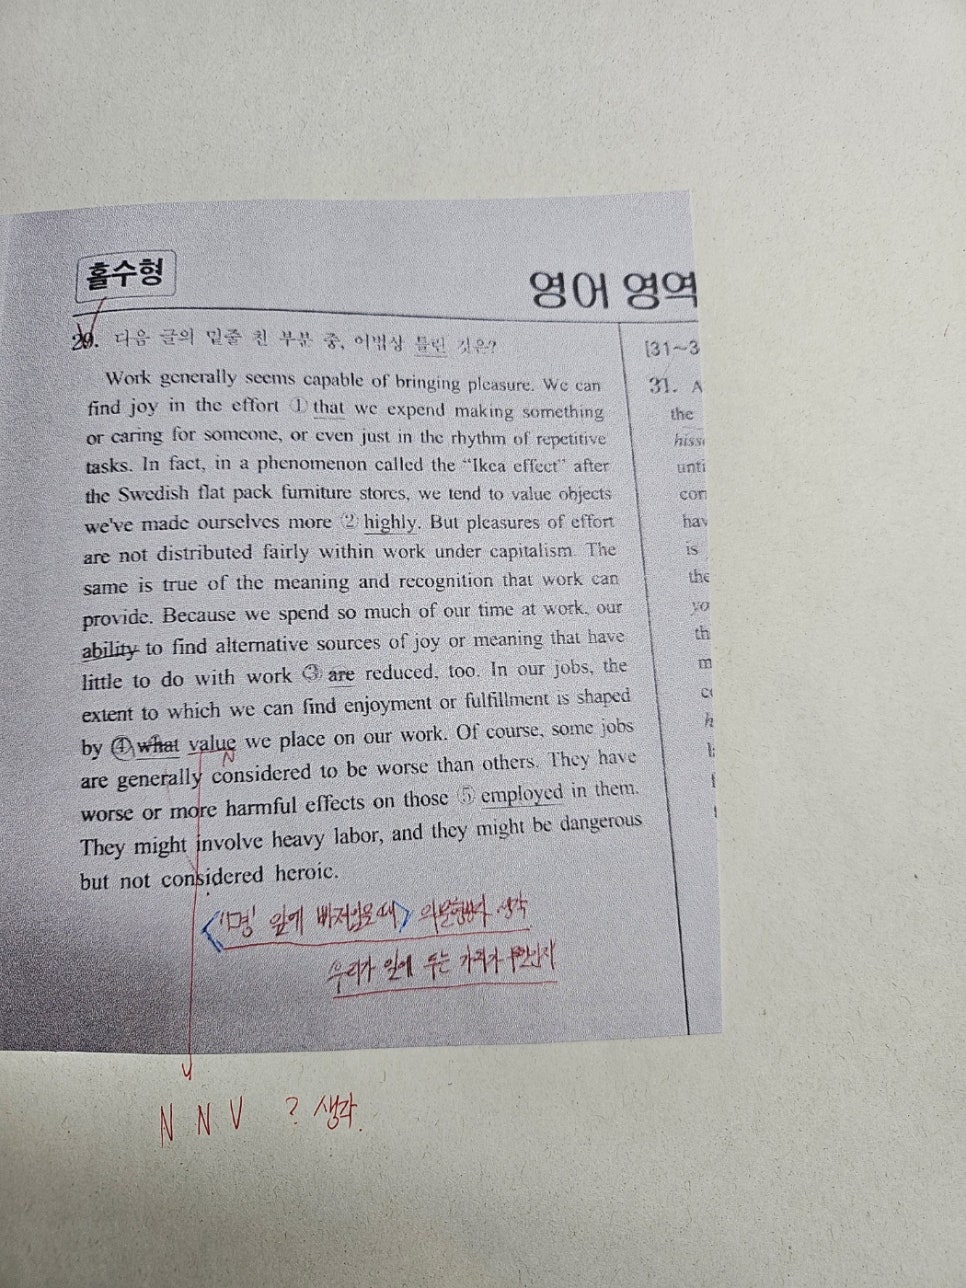 홀수형
영어 영역
29. 다음 글의 밑줄 친 부분 중, 어법상 틀린 것은?
Work generally seems capable of bringing pleasure. We can
find joy in the effort ① that we expend making something
or caring for someone, or even just in the rhythm of repetitive
tasks. In fact, in a phenomenon called the “Ikea effect” after
the Swedish flat pack furniture stores, we tend to value objects
we've made ourselves more ② highly. But pleasures of effort
are not distributed fairly within work under capitalism. The
same is true of the meaning and recognition that work can
provide. Because we spend so much of our time at work, our
ability to find alternative sources of joy or meaning that have
little to do with work ③ are reduced, too. In our jobs, the
extent to which we can find enjoyment or fulfillment is shaped
by ④ what value we place on our work. Of course, some jobs
N
are generally considered to be worse than others. They have
worse or more harmful effects on those ⑤ employed in them.
They might involve heavy labor, and they might be dangerous
but not considered heroic.
앞에 빠져있을 때 생각
우리가 일에 두는 가치가
N N V ? 생각
[31~3
31. A
the
hiss
unti
con
hav
is
the
yo
th
m